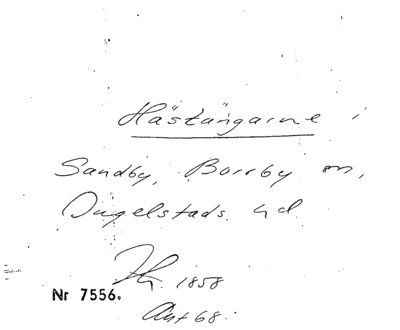 Hästängarne i
Sandby, Borrby sn,
Ingelstads hd
1858
Nr 7556.
Ant 68.